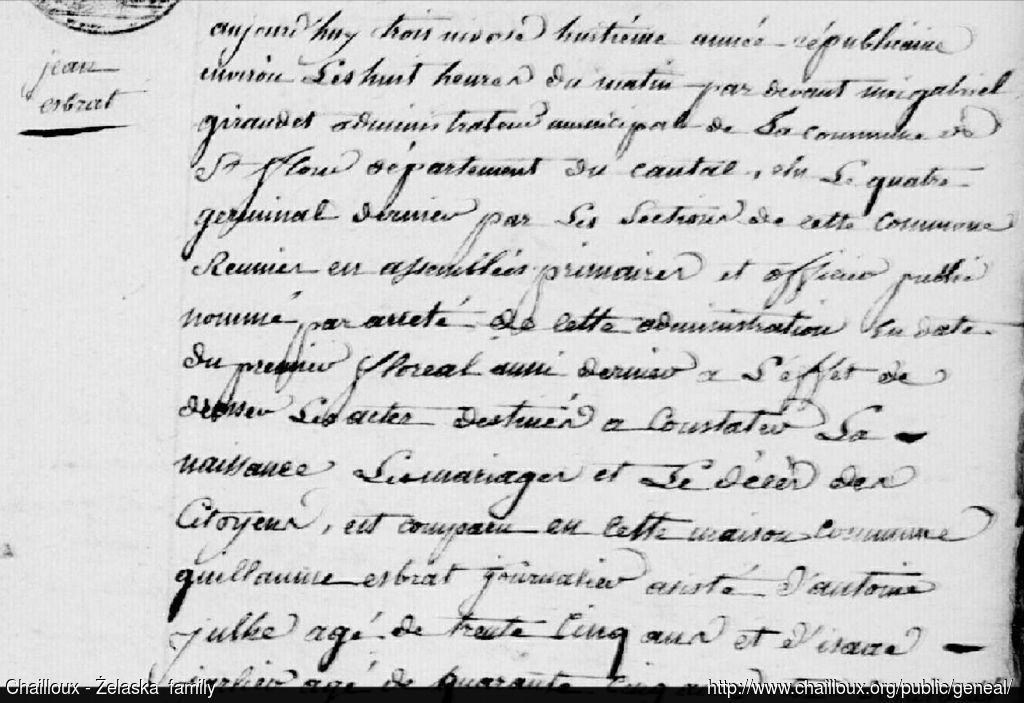 jean
esbrat
aujourd'huy trois nivose huitiéme année républicaine
environ Les huit heures du matin par devant moi gabriel
giraudet administrateur municipal de La commune de
St flour département du cantal, élu Le quatre
germinal dernier par Les Sections de cette commune
Reunies en assemblées primaires et officier public
nommé par arreté de cette administration en date
du premier floreal aussi dernier a L'effet de
dresser Les actes destinés a Constater La
naissance Les mariages et Le décès des
Citoyens, est comparu en cette maison Commune
guillaume esbrat journalier assisté d'antoine
julhe agé de trente Cinq ans et d'isaac
agé de quarante Cinq ans
Chailloux - Želaska family
http://www.chailloux.org/public/geneal/